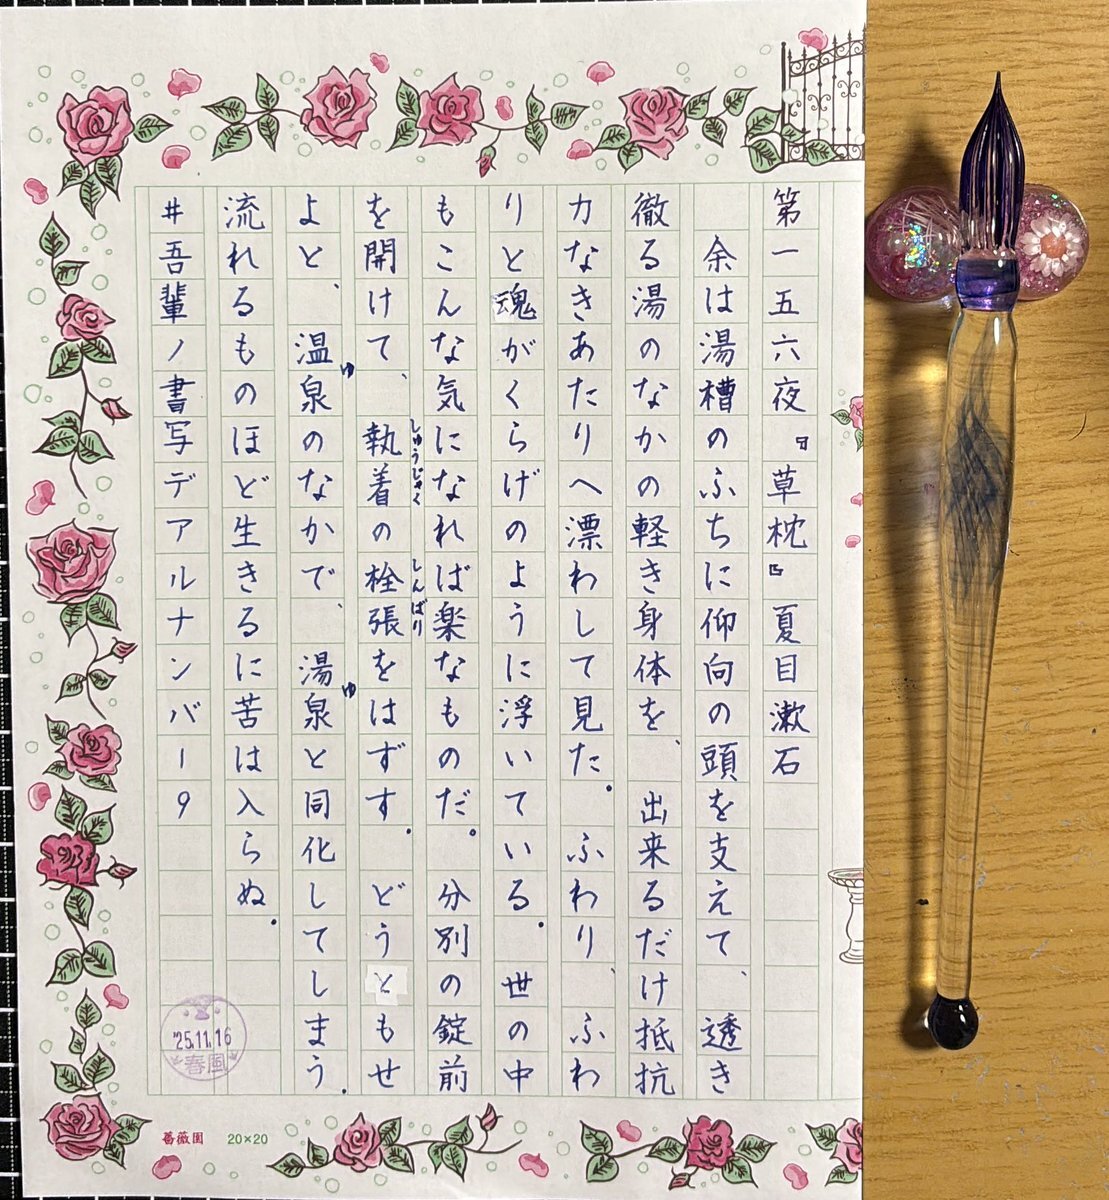 第一五六夜『草枕』夏目漱石
余は湯槽のふちに仰向の頭を支えて、透き
徹る湯のなかの軽き身体を、出来るだけ抵抗
力なきあたりへ漂わして見た。ふわり、ふわ
りと魂がくらげのように浮いている。世の中
もこんな気になれば楽なものだ。分別の錠前
を開けて、執着の栓張をはずす。どうともせ
しゅうじゃく
しんばり
よと、温泉のなかで、湯泉と同化してしまう。
ゆ
ゆ
流れるものほど生きるに苦は入らぬ。
#吾輩ノ書写デアルナンバー9
'25.11.16
春風
薔薇園 20×20